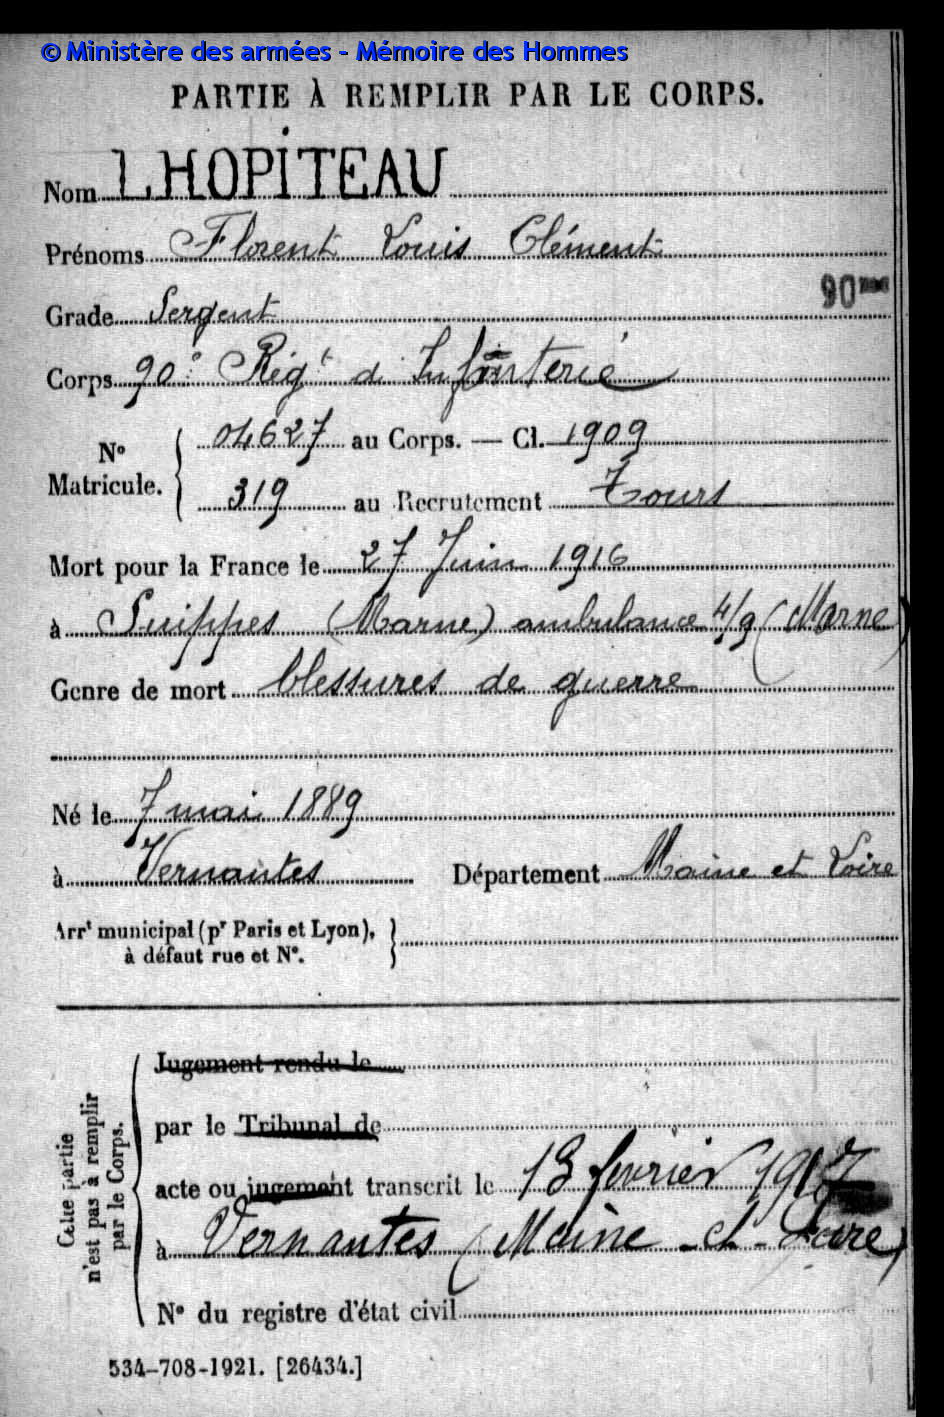 © Ministère des armées - Mémoire des Hommes
PARTIE À REMPLIR PAR LE CORPS.
Nom LHOPITEAU
Prénoms Florent Louis Clément
Grade Sergent
90
Corps 90e Régt d' Infanterie
04627 au Corps. — Cl. 1909
N° Matricule.
319 au Recrutement Tours
Mort pour la France le 27 Juin 1916
à Suippes (Marne) ambulance 4/9 (Marne)
Genre de mort blessures de guerre
Né le 7 mai 1889
à Vernantes Département Maine et Loire
Arrt municipal (pr Paris et Lyon),
à défaut rue et N°.
Jugement rendu le
par le Tribunal de
acte ou jugement transcrit le 13 février 1917
à Vernantes (Maine-et-Loire)
N° du registre d'état civil
Cette partie
n'est pas à remplir
par le Corps.
534-708-1921. [26434.]